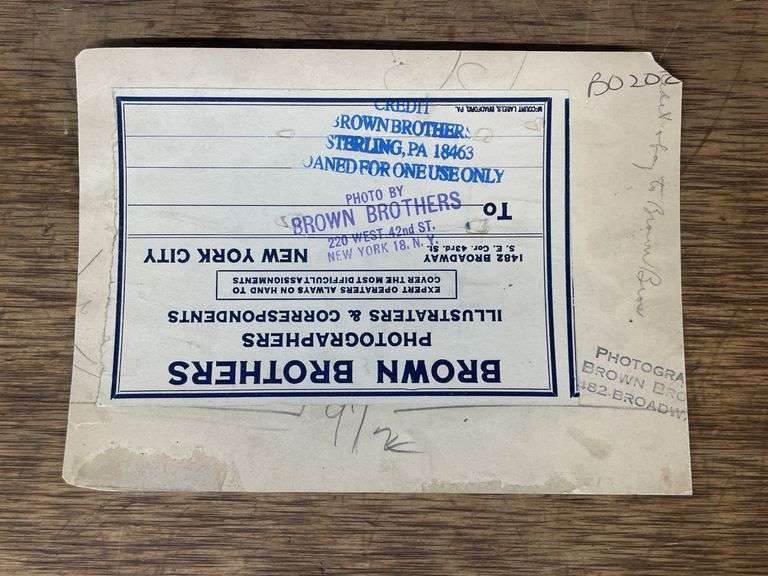 BROWN BROTHERS
PHOTOGRAPHERS
ILLUSTRATERS & CORRESPONDENTS
EXPERT OPERATERS ALWAYS ON HAND TO
COVER THE MOST DIFFICULT ASSIGNMENTS
1482 BROADWAY
S. E. Cor. 43rd. St.
NEW YORK CITY
TO
McCOURT LABELS, BRADFORD, PA.
CREDIT
BROWN BROTHERS
STERLING, PA 18463
LOANED FOR ONE USE ONLY
PHOTO BY
BROWN BROTHERS
220 WEST 42nd ST.
NEW YORK 18, N. Y.
PHOTOGRA
BROWN BRO
482 BROADW
9 1/2